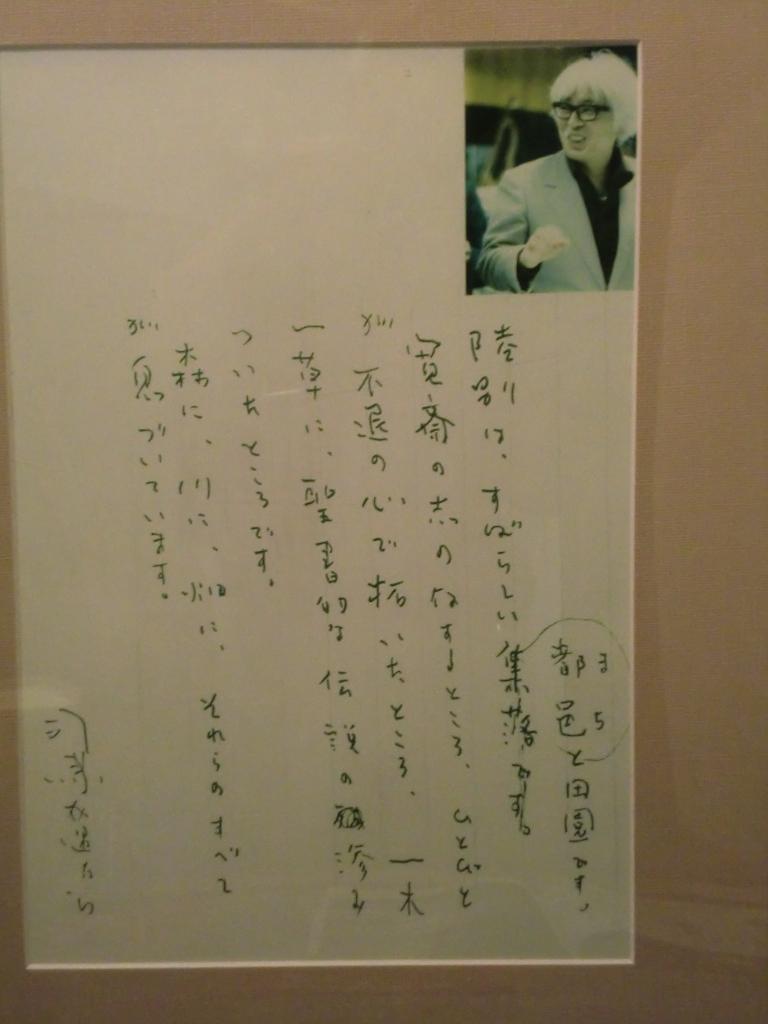 まち
都邑と田園です。
陸別は、すばらしい集落です。
寛斎の志の存するところ、ひとびと
が不退の心で拓いたところ、一木
一草に、聖書的な伝説の滲み
ついたところです。
森に、川に、畑に、それらのすべて
が息づいています。
司馬遼太郎